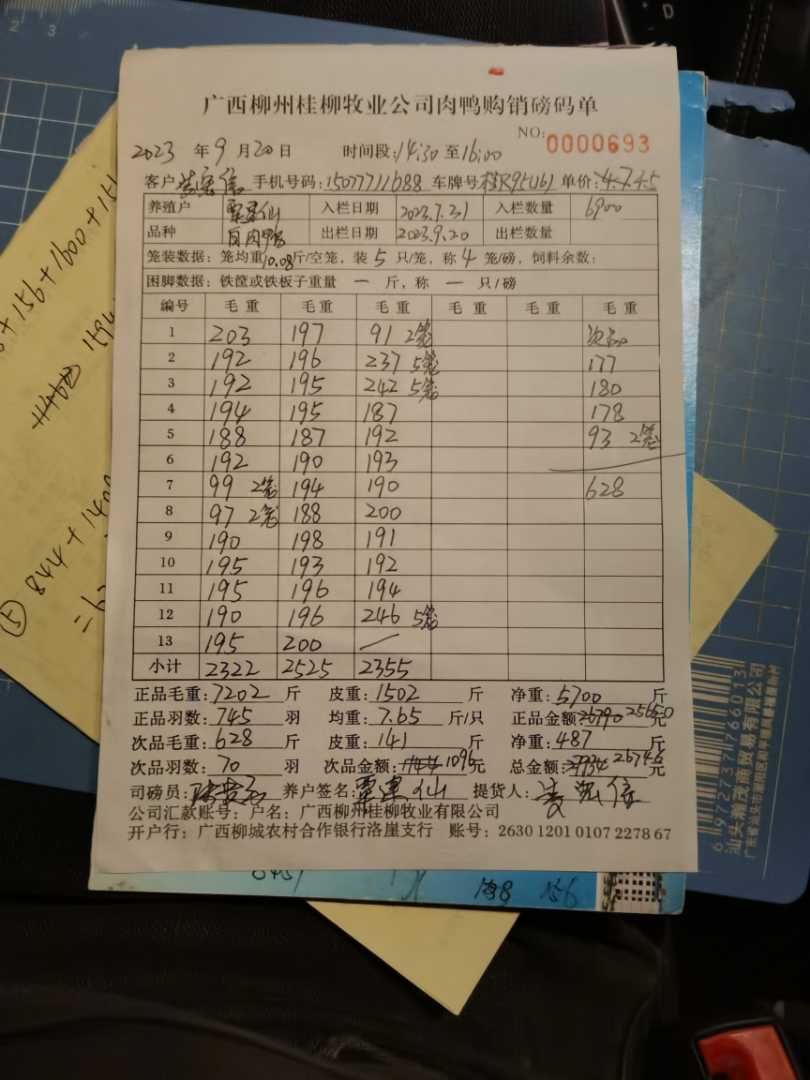 广西柳州桂柳牧业公司肉鸭购销磅码单
NO: 0000693
2023 年 9 月 20 日 时间段: 14:30 至 16:00
客户 手机号码: 15077711688 车牌号 桂R95U61 单价: 4.5
养殖户 覃建仙 入栏日期 2023.7.31 入栏数量 6900
品种 白肉鸭 出栏日期 2023.9.20 出栏数量
笼装数据: 笼均重 10.08 斤/空笼, 装 5 只/笼, 称 4 笼/磅, 饲料余数:
困脚数据: 铁筐或铁板子重量 一 斤, 称 一 只/磅
编号 毛重 毛重 毛重 毛重 毛重 毛重
1 203 197 91 2笼 次品
2 192 196 237 5笼 177
3 192 195 242 5笼 180
4 194 195 187 178
5 188 187 192 93 2笼
6 192 190 193
7 99 2笼 194 190 628
8 97 2笼 188 200
9 190 198 191
10 195 193 192
11 195 196 194
12 190 196 246 5笼
13 195 200 /
小计 2322 2525 2355
正品毛重: 7202 斤 皮重: 1502 斤 净重: 5700 斤
正品羽数: 745 羽 均重: 7.65 斤/只 正品金额: 25650 元
次品毛重: 628 斤 皮重: 141 斤 净重: 487 斤
次品羽数: 70 羽 次品金额: 1096 元 总金额: 26746 元
司磅员: 养户签名: 覃建仙 提货人:
公司汇款账号: 户名: 广西柳州桂柳牧业有限公司
开户行: 广西柳城农村合作银行洛崖支行 账号: 2630 1201 0107 2278 67
+156+1600+15
1594
⑤ 844+140
=6
6972737766013
汕头市茂商贸易有限公司
156